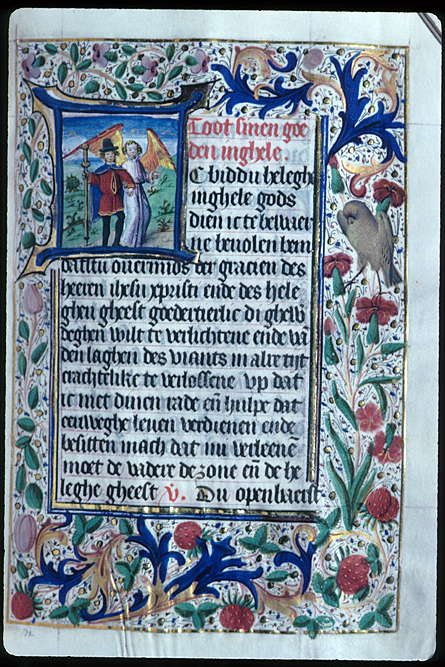 Toot sinen goe
den inghele.
C biddu heleghe
inghele gods
dien ic te bewaer
ne beuolen bem
datstu ouermids der gracien des
heeren ihesu xpristi ende des hele
ghen gheest goedertierlic di ghew
deghen wilt te verlichtene ende va
den laghen des viants in alre tijt
crachtelike te verlossene vp dat
ic met dinen rade en̄ hulpe dat
eeuweghe leuen verdienen ende
besitten mach dat mi verleene
moet de vadere de zone en̄ de he
leghe gheest v. Du openbaerst